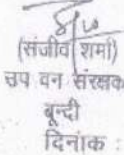 (संजीव शर्मा)
उप वन संरक्षक
बून्दी
दिनांक :